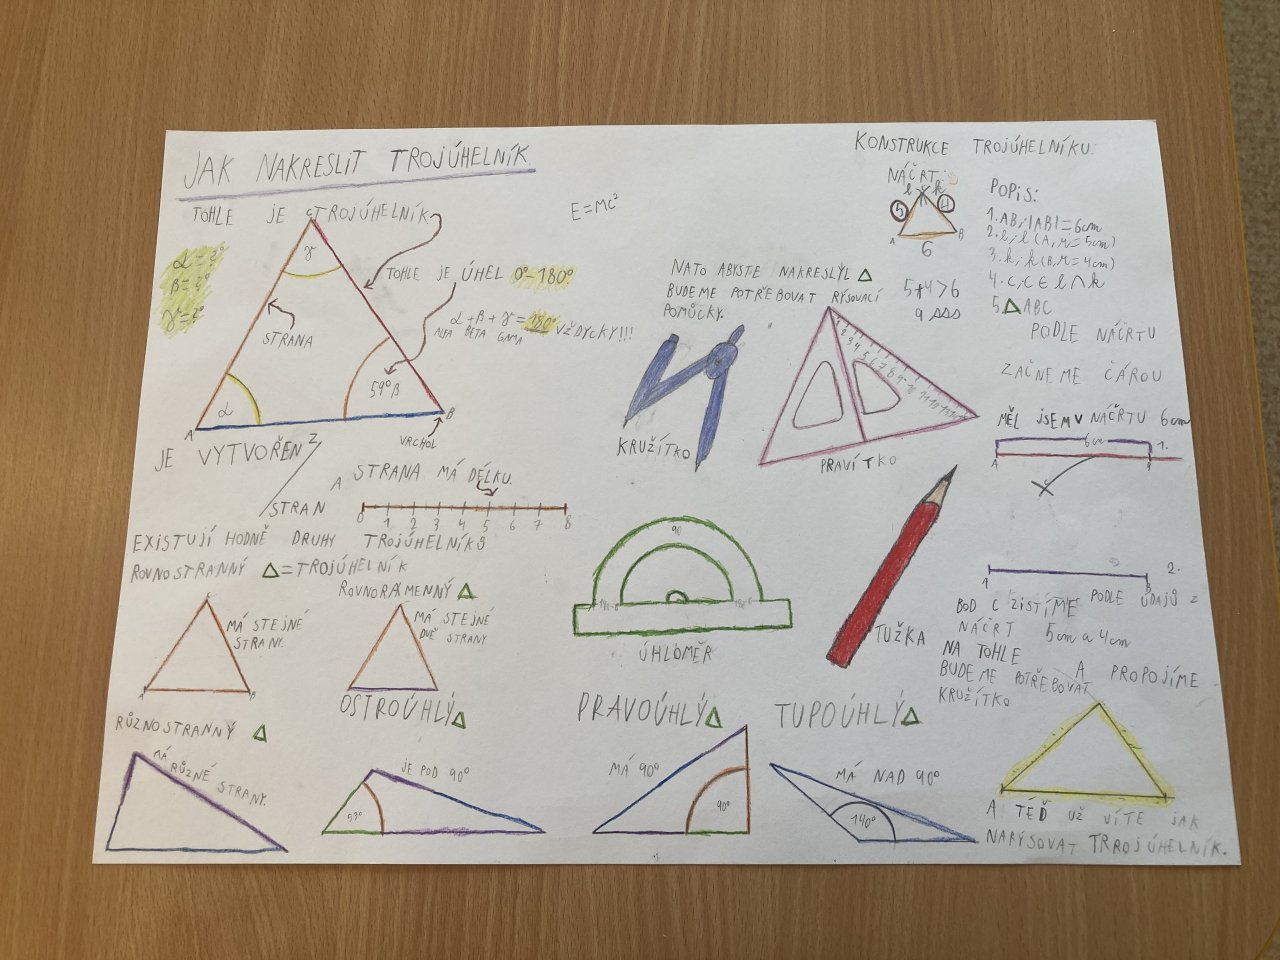 JAK NAKRESLIT TROJÚHELNÍK
TOHLE JE TROJÚHELNÍK
C
γ
α = ?°
β = ?°
γ = ?°
STRANA
TOHLE JE ÚHEL 0°-180°
α + β + γ = 180° VŽDYCKY!!!
ALFA BETA GAMA
α
59° β
A
B
VRCHOL
JE VYTVOŘEN Z
STRAN
A STRANA MÁ DÉLKU.
0 1 2 3 4 5 6 7 8
EXISTUJÍ HODNĚ DRUHY TROJÚHELNÍKŮ
ROVNOSTRANNÝ △ = TROJÚHELNÍK
C
MÁ STEJNÉ
STRANY.
A
B
ROVNORAMENNÝ △
MÁ STEJNÉ
DVĚ STRANY
RŮZNOSTRANNÝ △
MÁ RŮZNÉ STRANY.
OSTROÚHLÝ △
JE POD 90°
53°
PRAVOÚHLÝ △
MÁ 90°
90°
TUPOÚHLÝ △
MÁ NAD 90°
140°
E=MC²
NATO ABYSTE NAKRESLÝL △
BUDEME POTŘEBOVAT RÝSOVACÍ
POMŮCKY.
KRUŽÍTKO
PRAVÍTKO
90
ÚHLOMĚR
TUŽKA
KONSTRUKCE TROJÚHELNÍKU:
NÁČRT:
l k
5 4
A B
6
5+4>6
9
POPIS:
1. AB; |AB| = 6cm
2. l; l (A, r = 5cm)
3. k; k (B, r = 4cm)
4. C; C ∈ l ∩ k
5. △ ABC
PODLE NÁČRTU
ZAČNEME ČÁROU
MĚL JSEM V NÁČRTU 6cm
6cm
1.
A
B
2.
A
B
BOD C ZISTÍME PODLE ÚDAJŮ Z
NÁČRT 5cm a 4cm
NA TOHLE
BUDEME POTŘEBOVAT
KRUŽÍTKO
A PROPOJÍME
A TEĎ UŽ VÍTE JAK
NARÝSOVAT TRROJÚHELNÍK.